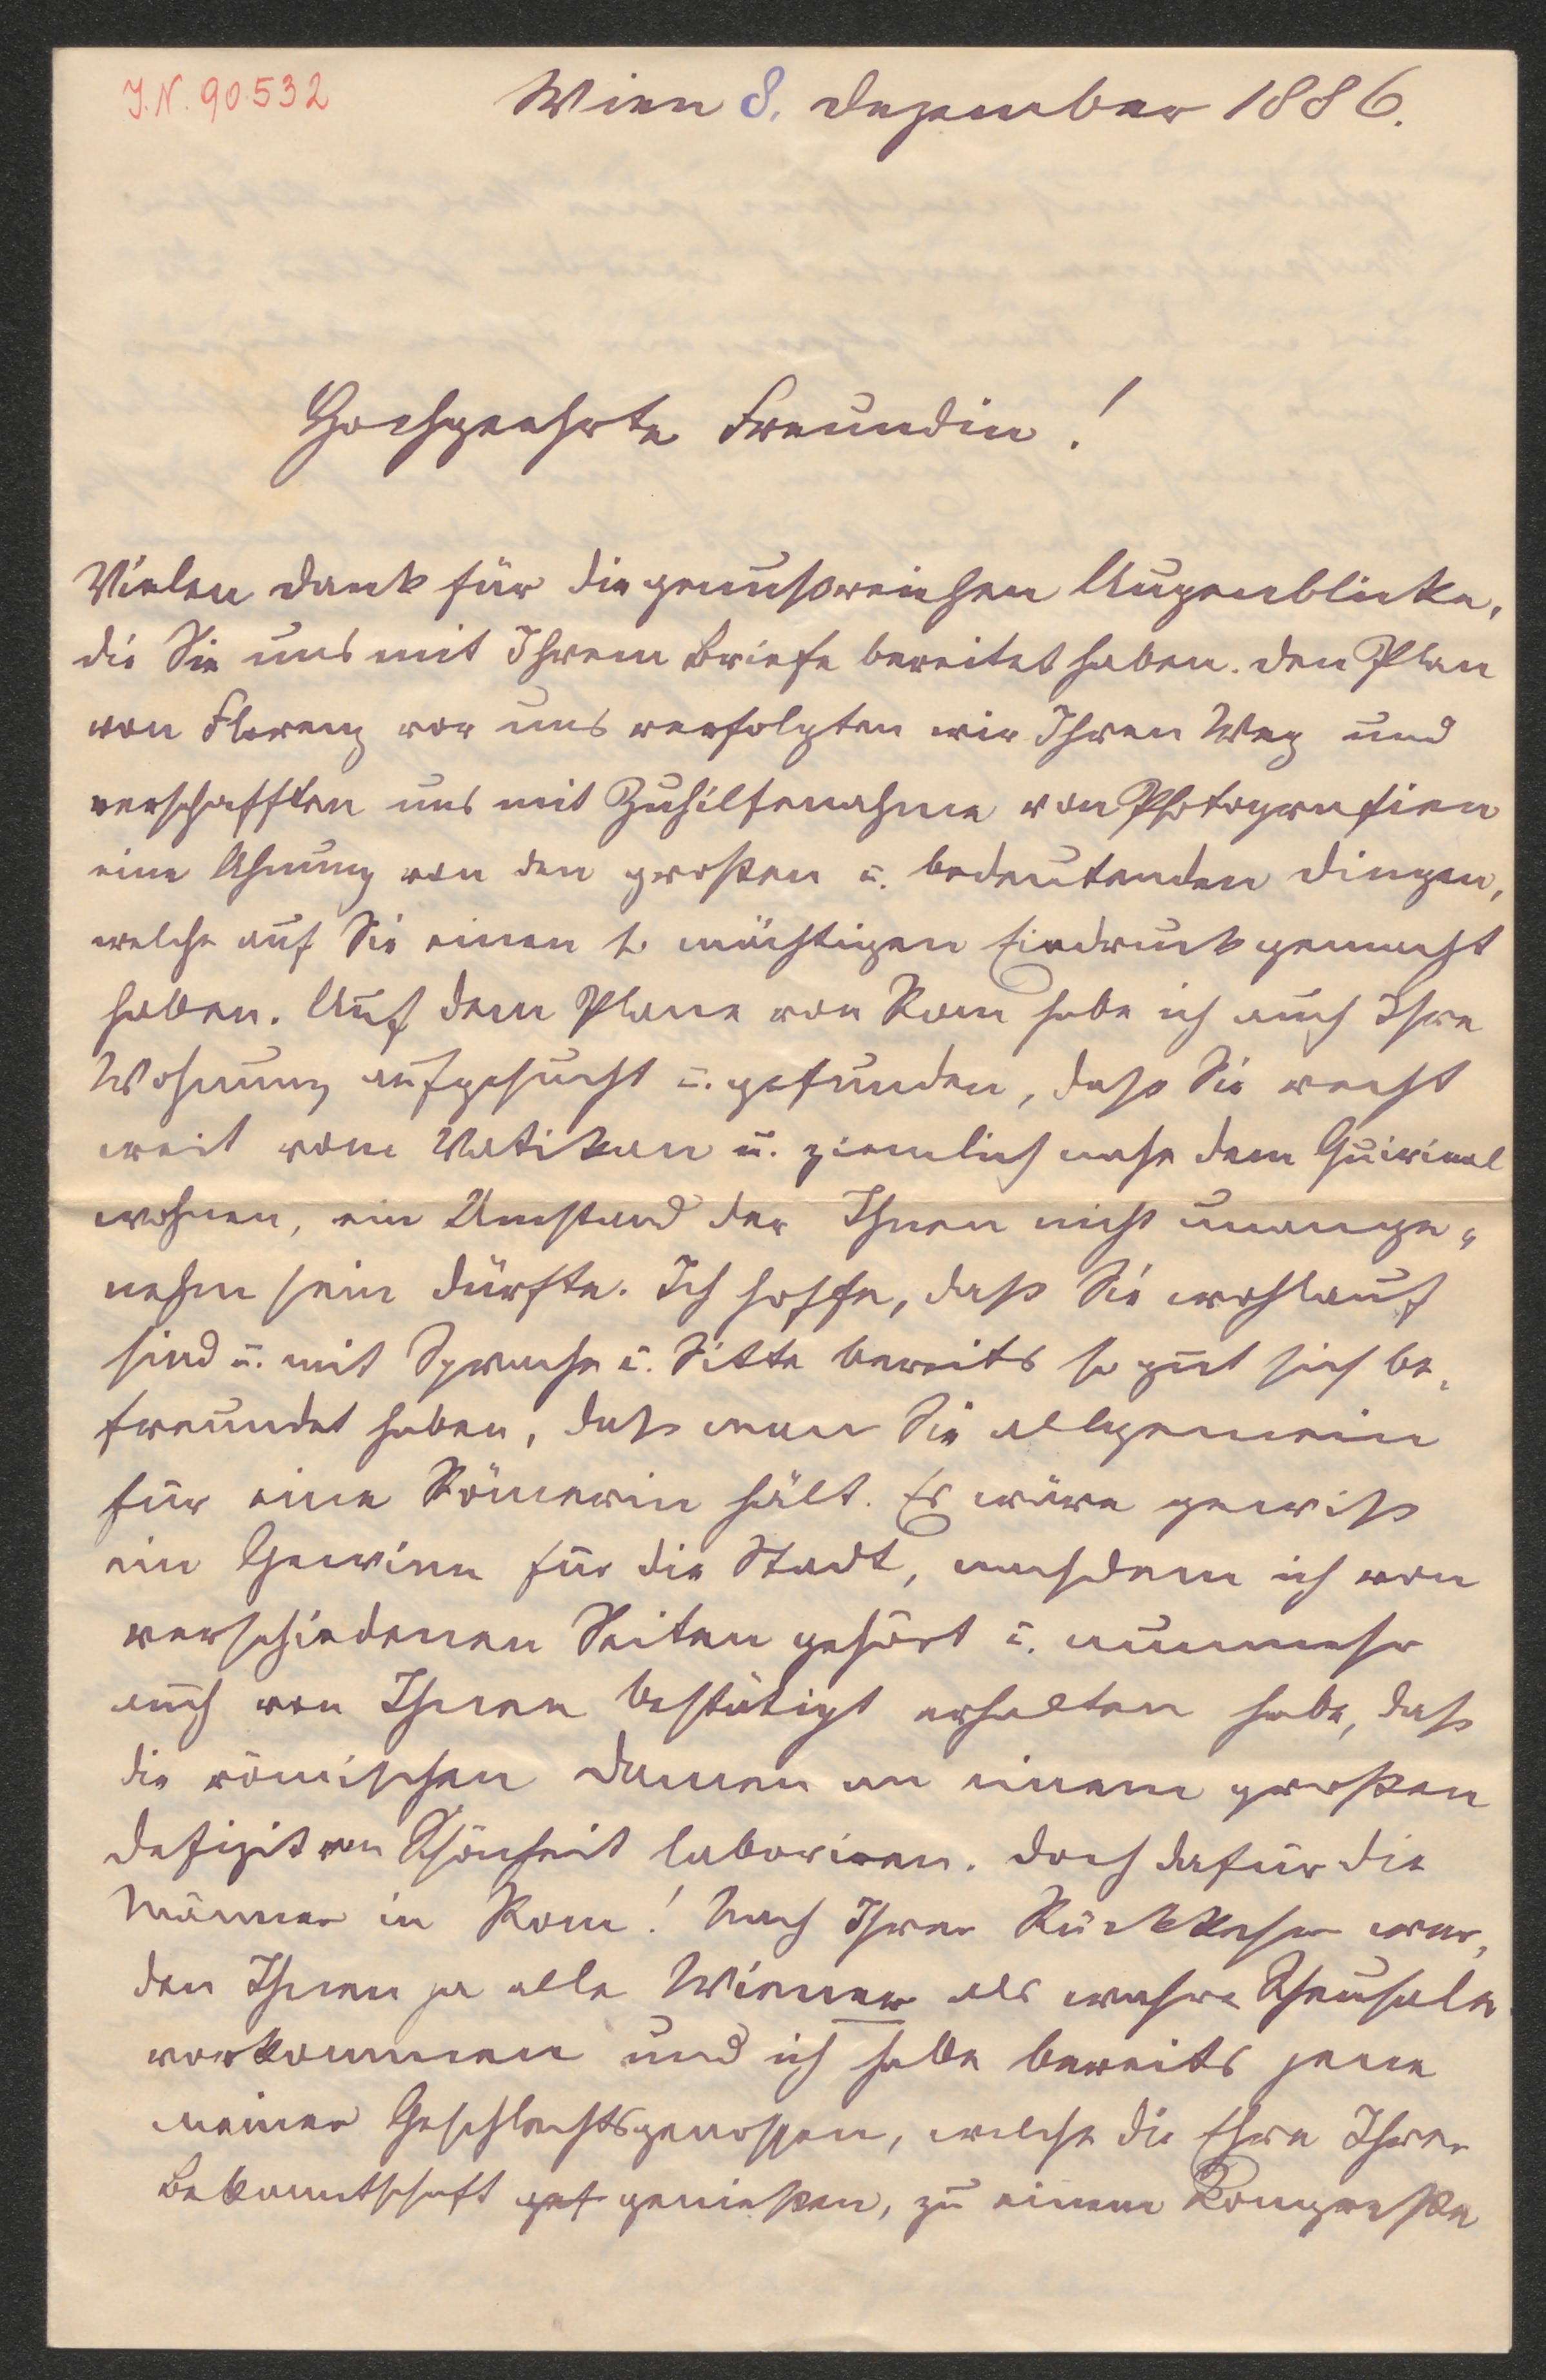 J.N. 90.532
Wien 8. Dezember 1886.
Hochgeehrte Freundin!
Vielen Dank für die genußreichen Augenblicke,
die Sie uns mit Ihrem Briefe bereitet haben. Den Plan
von Florenz vor uns verfolgten wir Ihren Weg und
verschafften uns mit Zuhilfenahme von Photografien
eine Ahnung von den großen u. bedeutenden Dingen,
welche auf Sie einen so mächtigen Eindruck gemacht
haben. Auf dem Plane von Rom habe ich auch Ihre
Wohnung aufgesucht u. gefunden, daß Sie recht
weit vom Vatikan u. ziemlich nahe dem Quirinal
wohnen, ein Umstand der Ihnen nicht unange-
nehm sein dürfte. Ich hoffe, daß Sie wohlauf
sind u. mit Sprache u. Sitte bereits so gut sich be-
freundet haben, daß man Sie allgemein
für eine Römerin hält. Es wäre gewiß
ein Gewinn für die Stadt, nachdem ich von
verschiedenen Seiten gehört u. nunmehr
auch von Ihnen bestätigt erhalten habe, daß
die römischen Damen an einem großen
Defizit von Schönheit laboriren. Doch dafür die
Männer in Rom! Nach Ihrer Rückkehr wer-
den Ihnen ja alle Wiener als wahre Scheusale
vorkommen und ich habe bereits jene
meiner Geschlechtsgenossen, welche die Ehre Ihrer
Bekanntschaft genießen, zu einem Kongreße